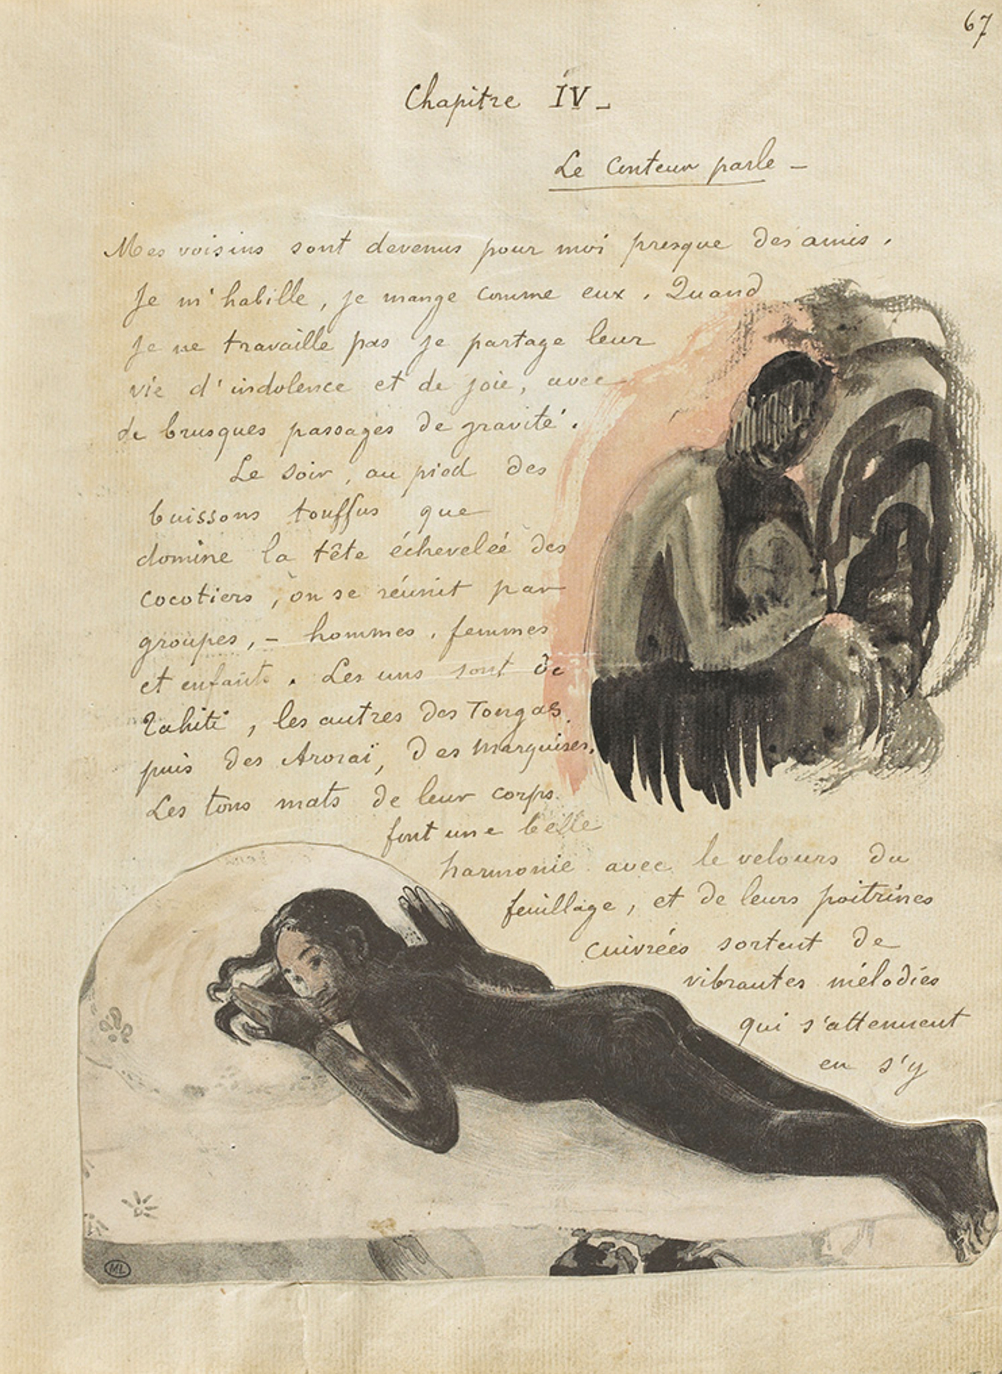 67
Chapitre IV_
Le Conteur parle _
Mes voisins sont devenus pour moi presque des amis.
Je m'habille, je mange comme eux. Quand
je ne travaille pas je partage leur
vie d'indolence et de joie, avec
de brusques passages de gravité.
Le soir, au pied des
buissons touffus que
domine la tête échevelée des
cocotiers, on se réunit par
groupes, _ hommes, femmes
et enfants. Les uns sont de
Tahiti, les autres des Tongas,
puis des Aroraï, des Marquises.
Les tons mats de leur corps
font une belle
harmonie avec le velours du
feuillage, et de leurs poitrines
cuivrées sortent de
vibrantes mélodies
qui s'attenuent
en s'y
ML